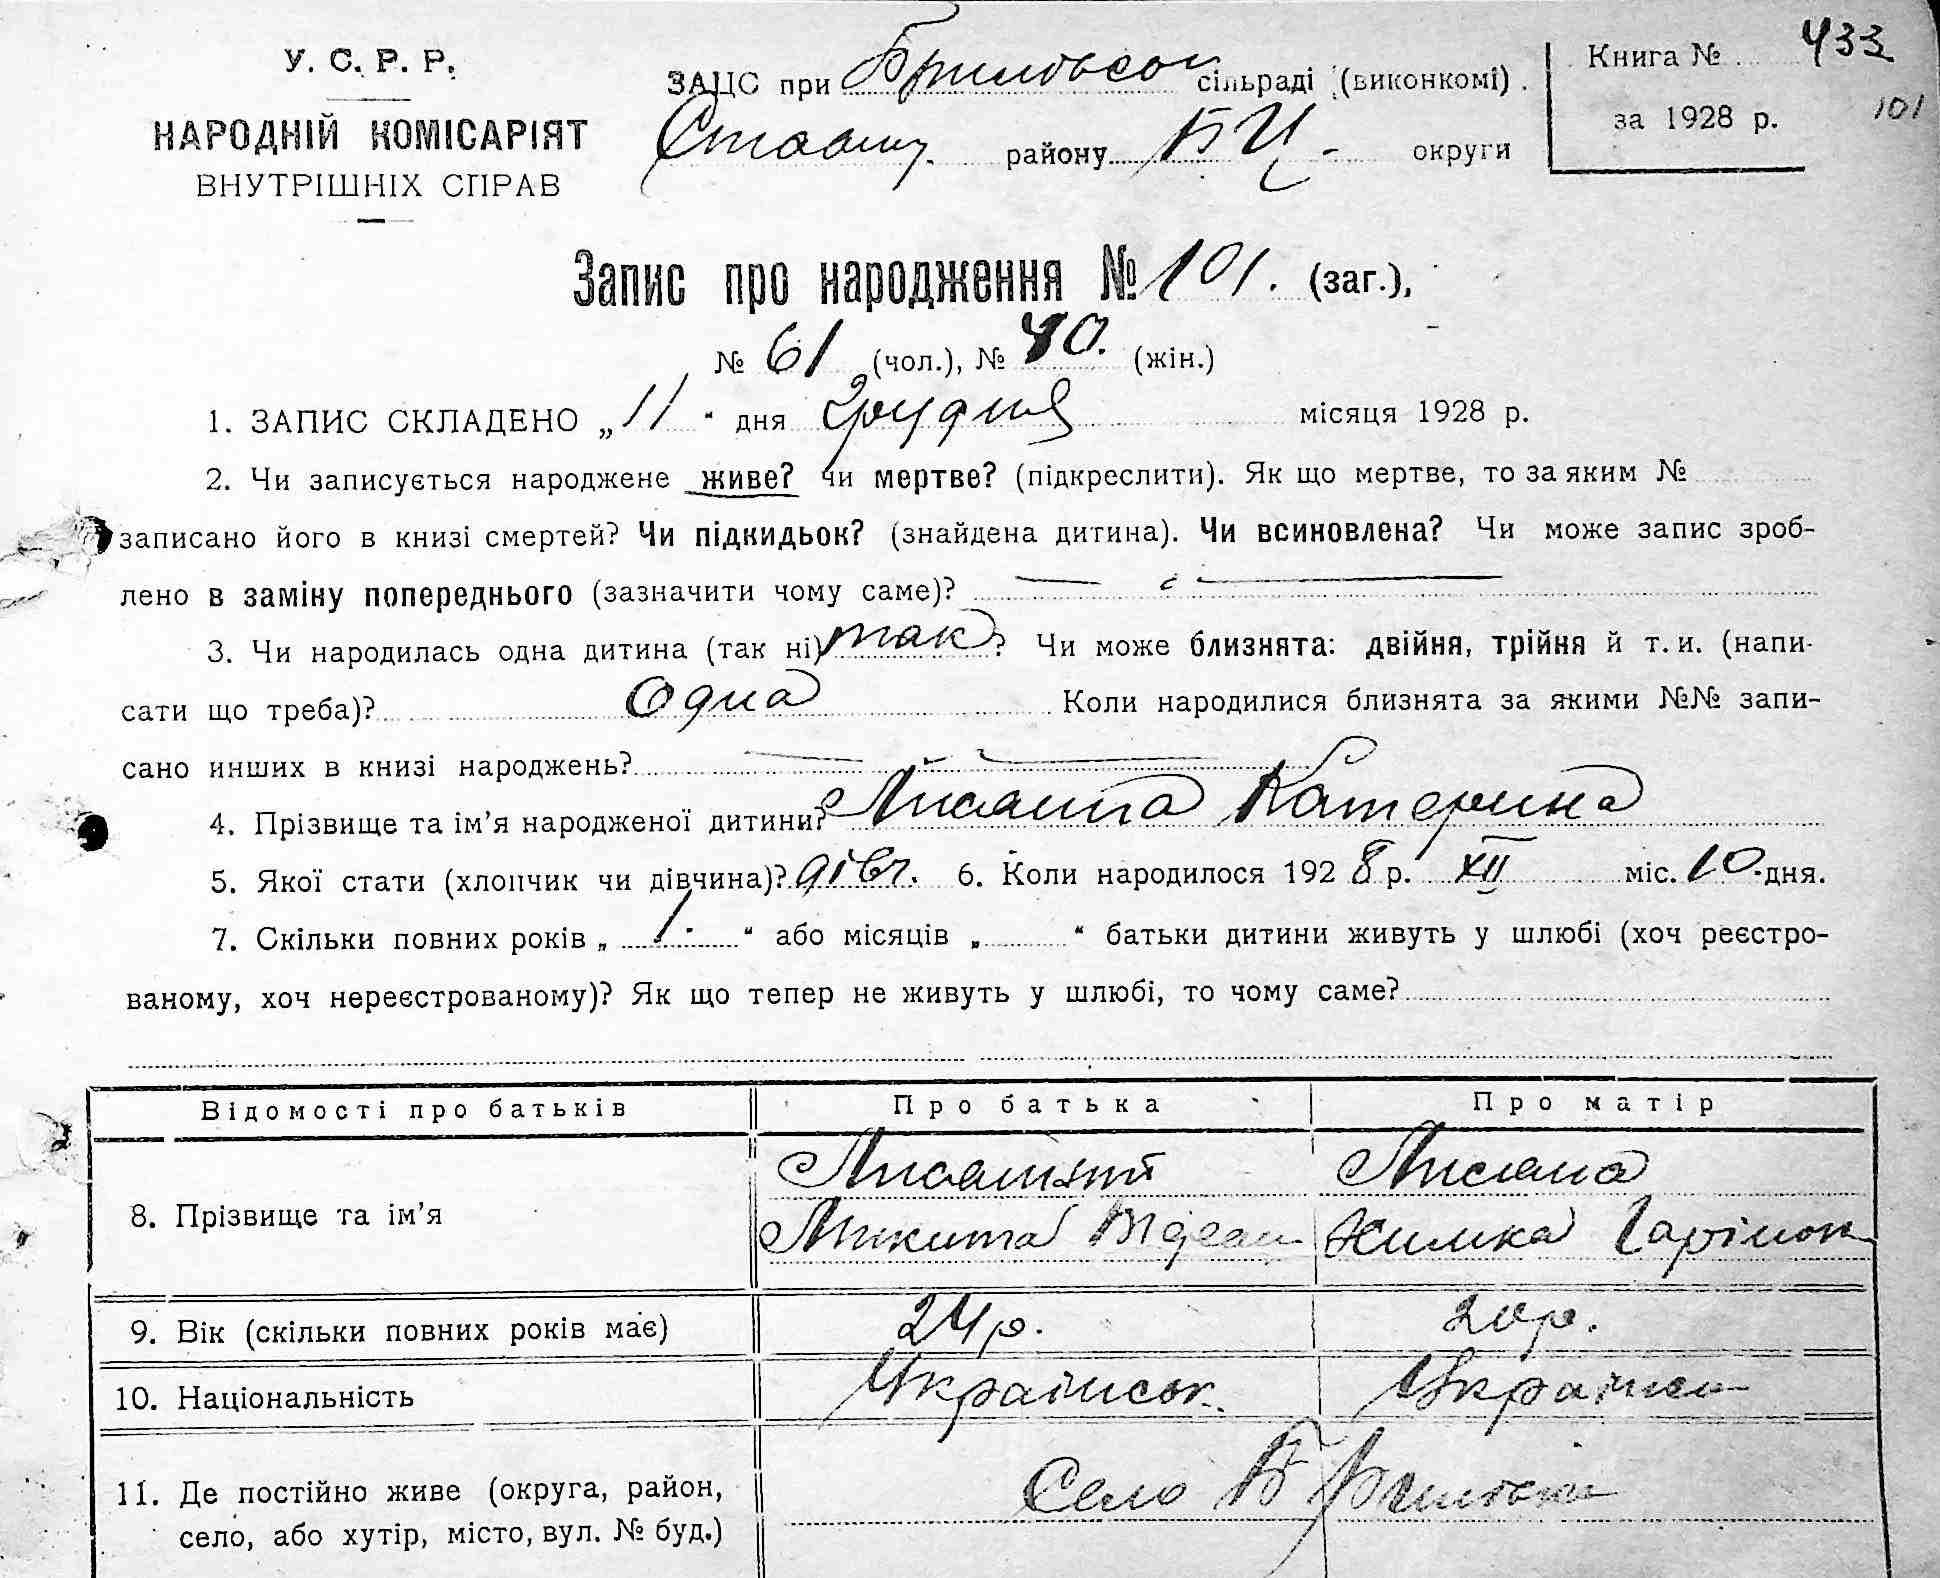 У. С. Р. Р.
НАРОДНІЙ КОМІСАРІЯТ
ВНУТРІШНІХ СПРАВ
ЗАЦС при сільраді (виконкомі).
району БЦ - округи
Книга № 433
за 1928 р. 101
Запис про народження № 101. (заг.),
№ 61 (чол.), № 40. (жін.)
1. ЗАПИС СКЛАДЕНО „ 11 “ дня грудня місяця 1928 р.
2. Чи записується народжене живе? чи мертве? (підкреслити). Як що мертве, то за яким №
записано його в книзі смертей? Чи підкидьок? (знайдена дитина). Чи всиновлена? Чи може запис зроб-
лено в заміну попереднього (зазначити чому саме)?
3. Чи народилась одна дитина (так ні) так ? Чи може близнята: двійня, трійня й т. и. (напи-
сати що треба)? Одна Коли народилися близнята за якими №№ запи-
сано инших в книзі народжень?
4. Прізвище та ім’я народженої дитини? Катерина
5. Якої стати (хлопчик чи дівчина)? дівч. 6. Коли народилося 1928 р. XII міс. 10. дня.
7. Скільки повних років „ 1. “ або місяців „ “ батьки дитини живуть у шлюбі (хоч реєстро-
ваному, хоч нереєстрованому)? Як що тепер не живуть у шлюбі, то чому саме?
Відомості про батьків Про батька Про матір
8. Прізвище та ім’я
Микита Химка
9. Вік (скільки повних років має) 24 р. 20 р.
10. Національність Українськ.
11. Де постійно живе (округа, район,
село, або хутір, місто, вул. № буд.)
Село